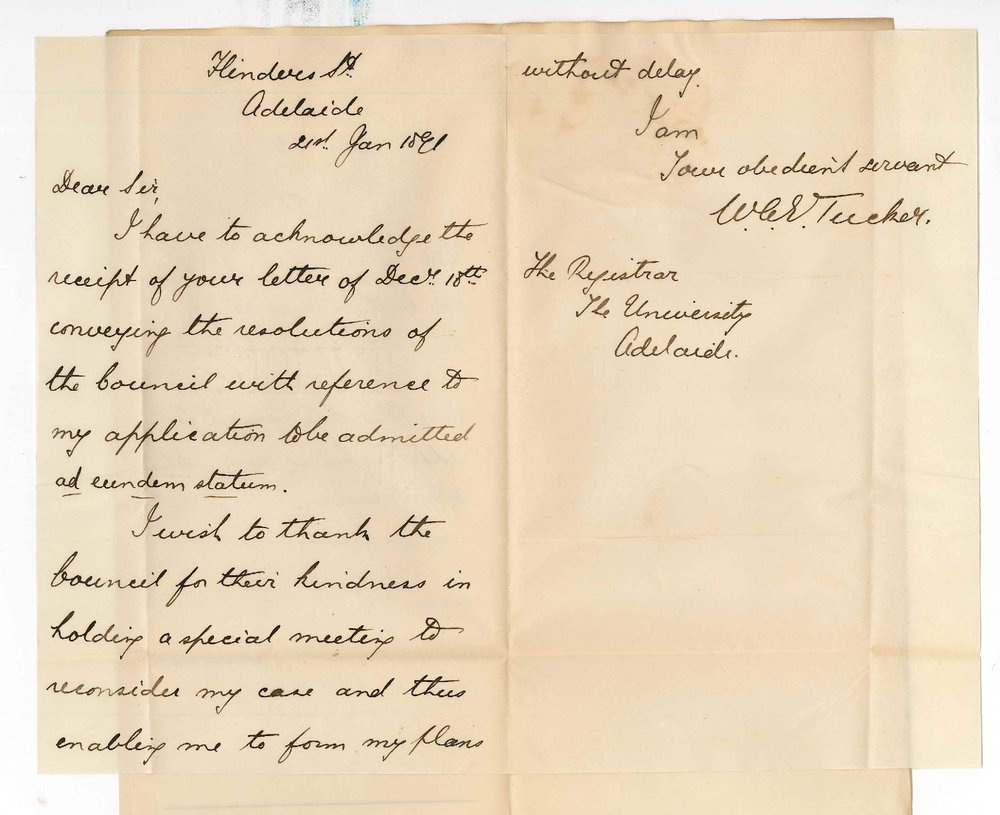 Flinders St.
Adelaide
21st. Jan 1891
Dear Sir,
I have to acknowledge the
receipt of your letter of Decr. 18th
conveying the resolutions of
the Council with reference to
my application to be admitted
ad eundem statum.
I wish to thank the
Council for their kindness in
holding a special meeting to
reconsider my case and thus
enabling me to form my plans
without delay.
I am
Your obedient servant
W.A.E. Tucker.
The Registrar
The University
Adelaide.